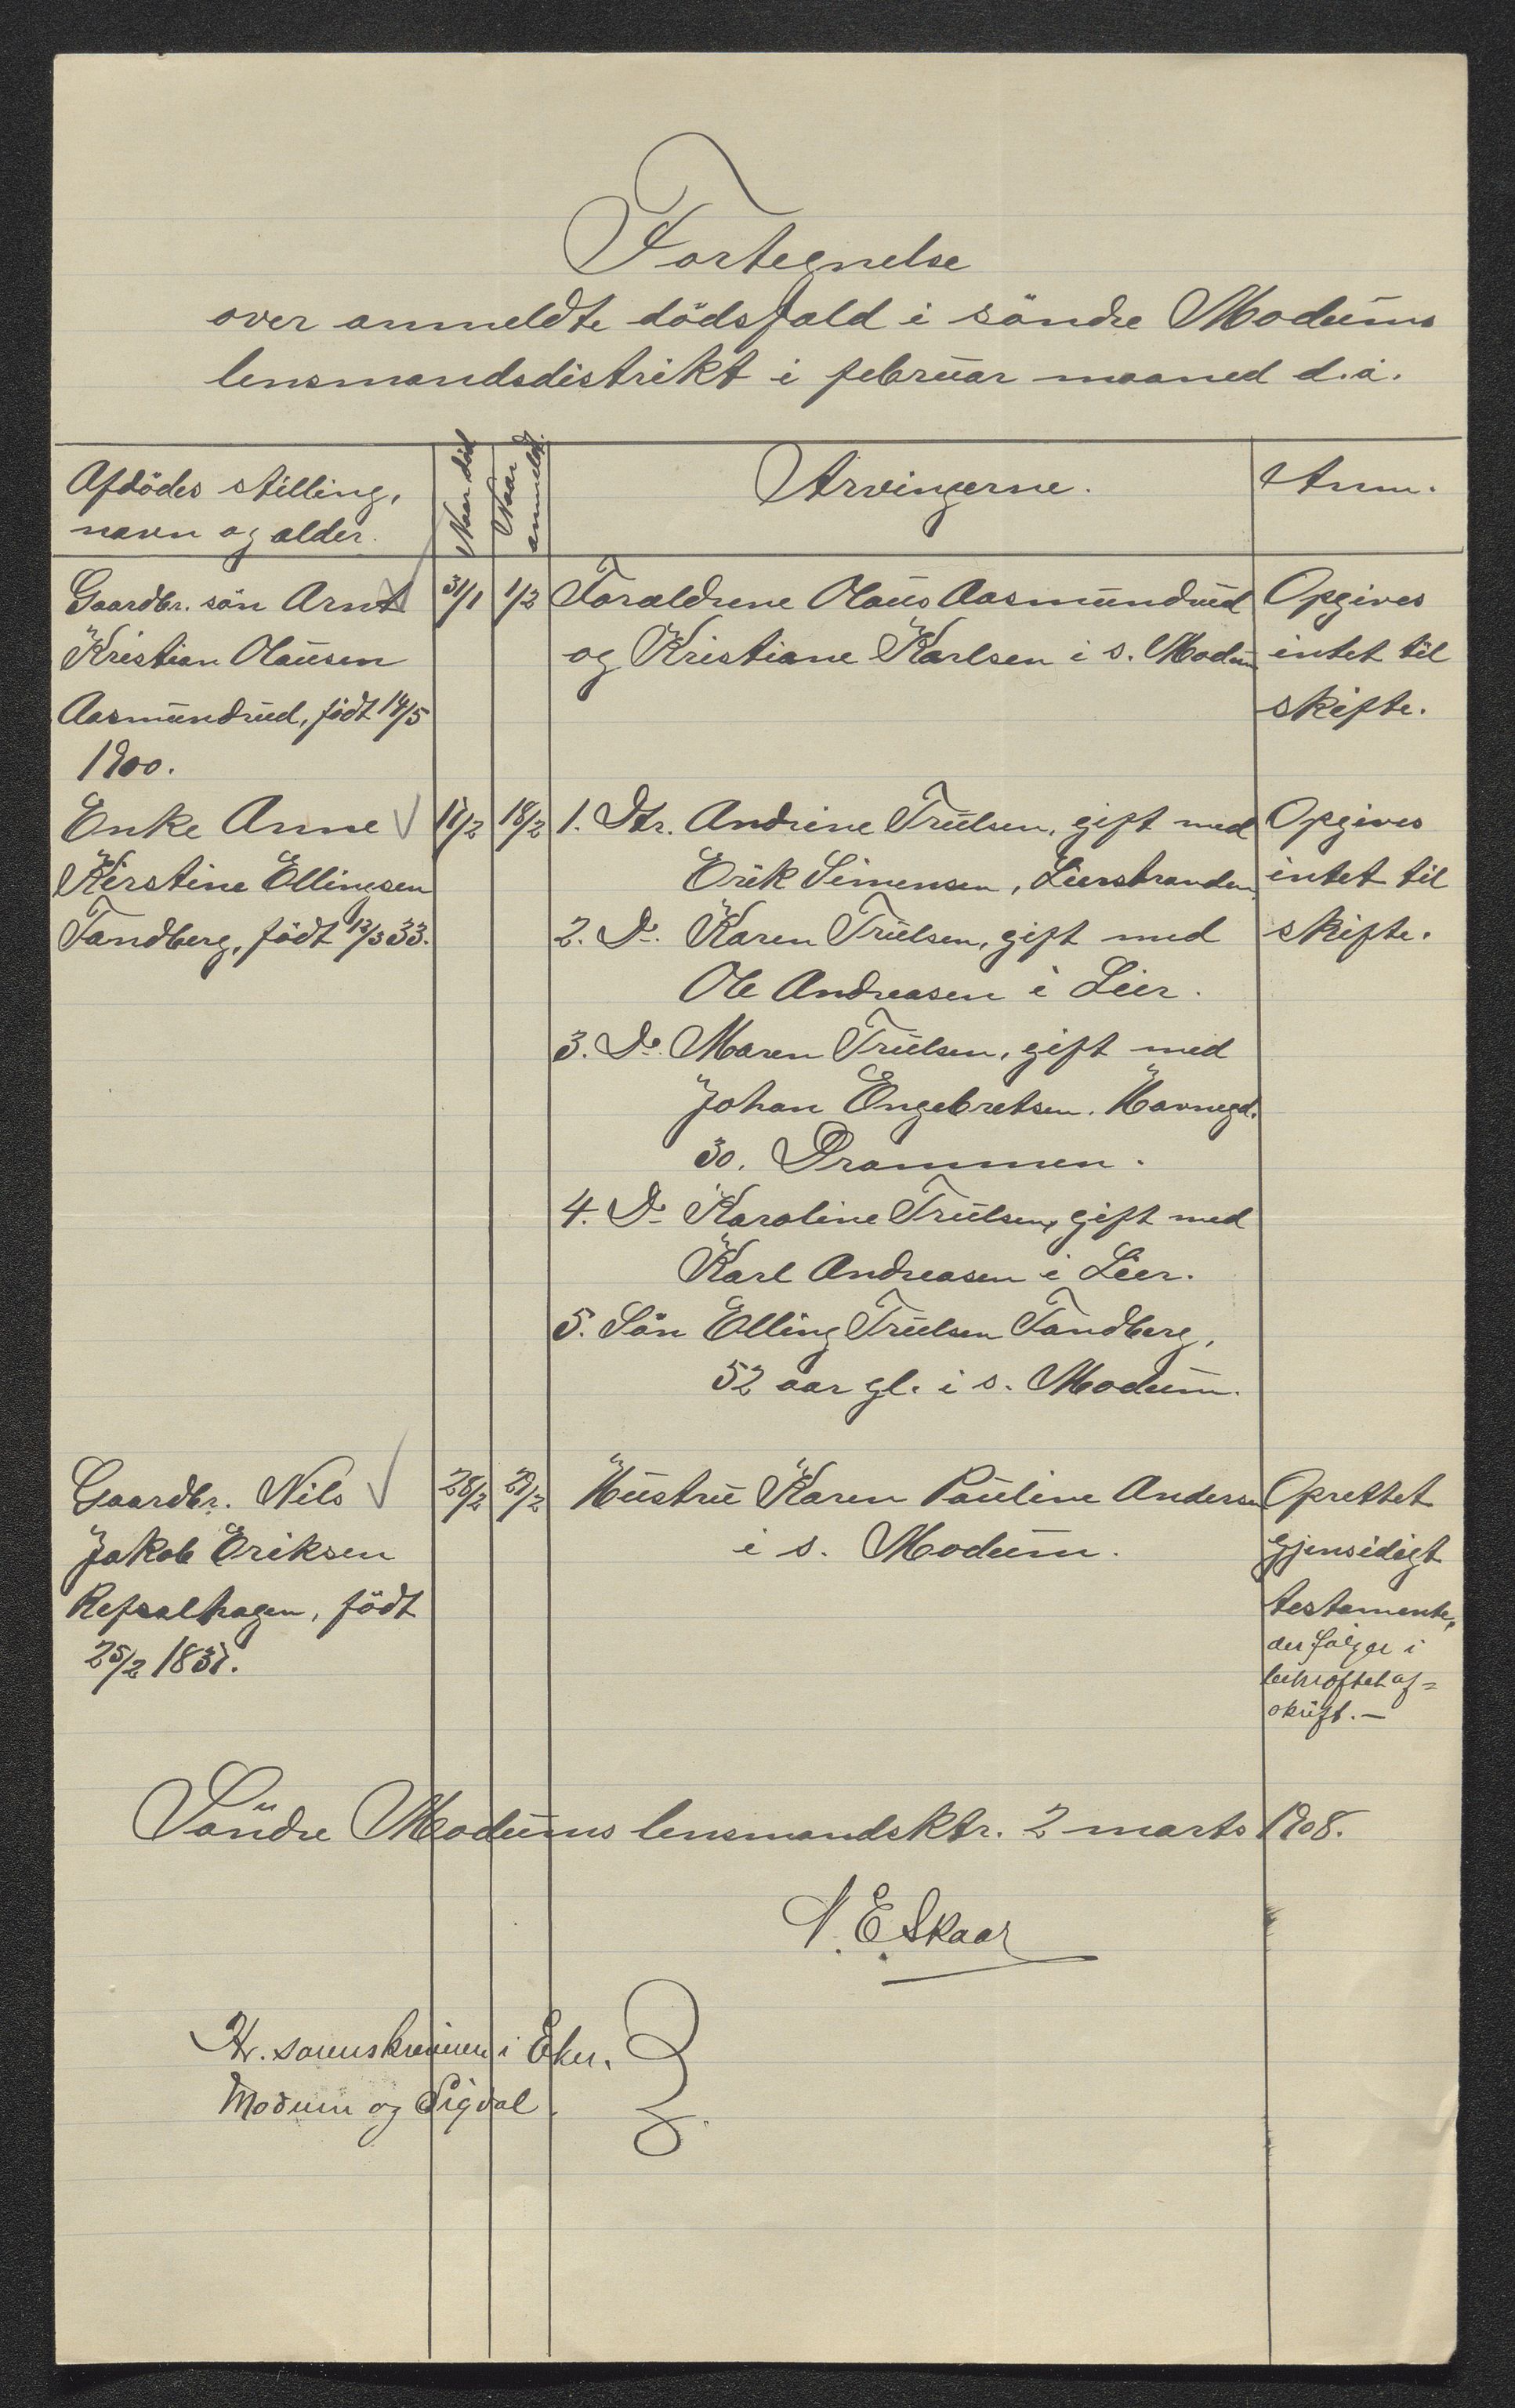 Fortegnelse
over anmeldte dödsfald i söndre Modums
lensmandsdistrikt i februar maaned d.å.
Afdödes stilling,
navn og alder.
Naar död
Naar anmeldt.
Arvingerne.
Anm.
Gaardbr. sön Arnt
Kristian Olausen
Aasmundrud, födt 14/5
1900.
31/1
1/2
Forældrene Olaus Aasmundrud
og Kristiane Karlsen i s. Modum
Opgives
intet til
skifte.
Enke Anne
Kirstine Ellingsen
Tandberg, födt 12/3 33.
17/2
18/2
1. Dtr. Andrine Trulsen, gift med
Erik Simensen, Lierstranden
2. Do. Karen Trulsen, gift med
Ole Andreasen i Lier.
3. Do. Maren Trulsen, gift med
Johan Engebretsen. Havnegd.
30. Drammen.
4. Do Karoline Trulsen, gift med
Karl Andreasen i Lier.
5. Sön Elling Trulsen Tandberg,
52 aar gl. i s. Modum.
Opgives
intet til
skifte.
Gaardbr. Nils
Jakob Eriksen
Refsalhagen, födt
25/2 1837.
28/2
29/2
Hustru Karen Pauline Andersen
i s. Modum.
Oprettet
gjensidigt
testamente,
der følger i
bekræftet af=
skrift. —
Söndre Modums lensmandsktr. 2 marts 1908.
N. E. Skaar
Hr. sorenskriveren i Eker,
Modum og Sigdal.